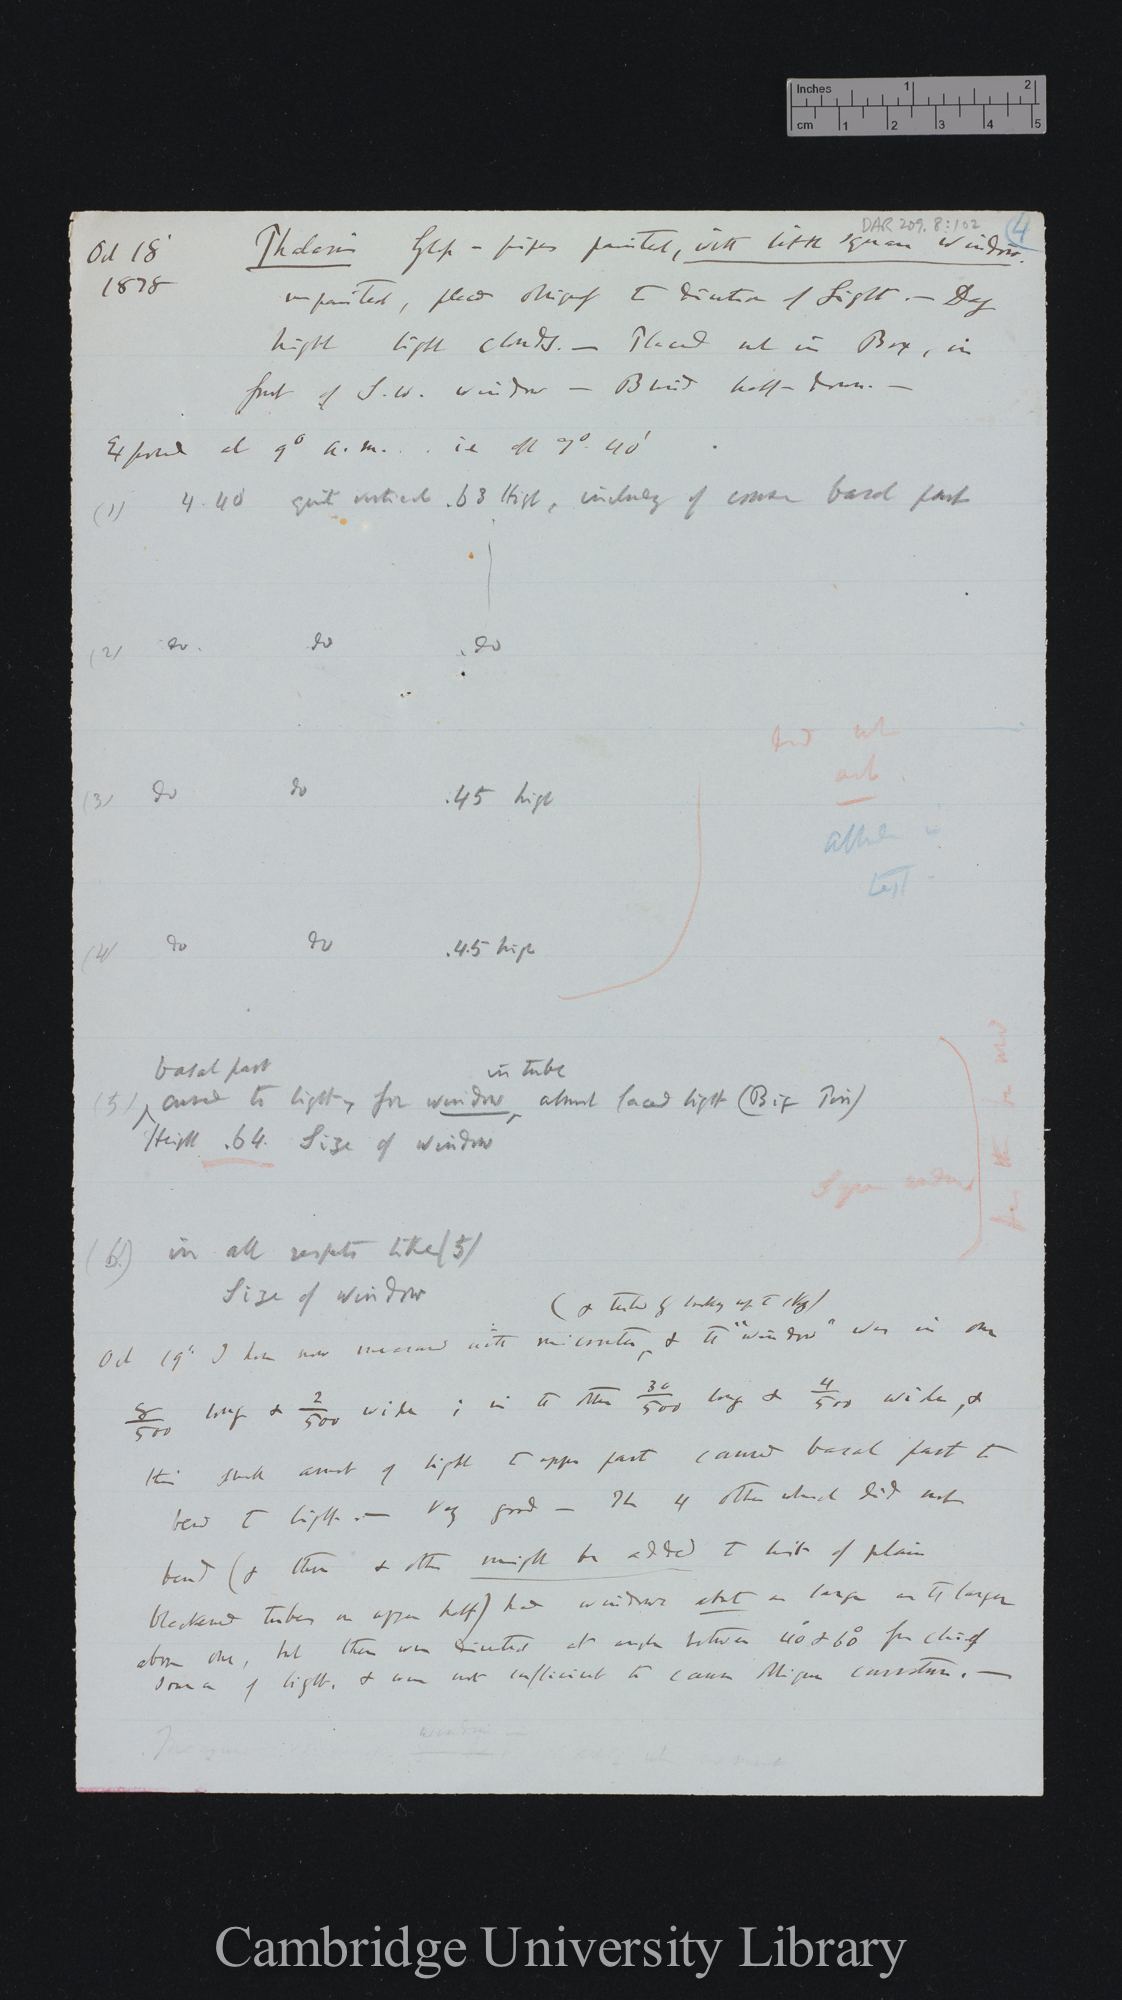 Inches 1 2
cm 1 2 3 4 5
DAR 209.8:102
4
Oct 18 Phalaris Glass-pipes painted, with little square window
1878 unpainted, placed oblique to direction of Light. — Day
bright light clouds. — Placed not in Box, in
front of S.W. window — Blind half-down. —
Exposed at 9° a.m. . ie 7° 40'
(1) 4.40 quite vertical .63 High, including of course basal part
(2) do. do .do
(3) do do .45 high
not
(4) do do .45 high
basal part in tube
(5) curved to light, for window, almost faced light (Big Tin)
Height .64. Size of window
(6.) in all respects like (5)
Size of window
(& tested by looking up to sky)
Oct 19th I have now measured with micrometer, & the "window" was in one
8/500 long & 2/500 wide; in the other 30/500 long & 4/500 wide, &
this small amount of light to upper part caused basal part to
bend to light. — Very good — The 4 others which did not
bend (& these & others might be added to lists of plain
blackened tubes on upper half) had windows about as large as the larger
above one, but these were directed at angle between 40° & 60° from chief
source of light, & were not sufficient to cause oblique curvature. —
window
Cambridge University Library